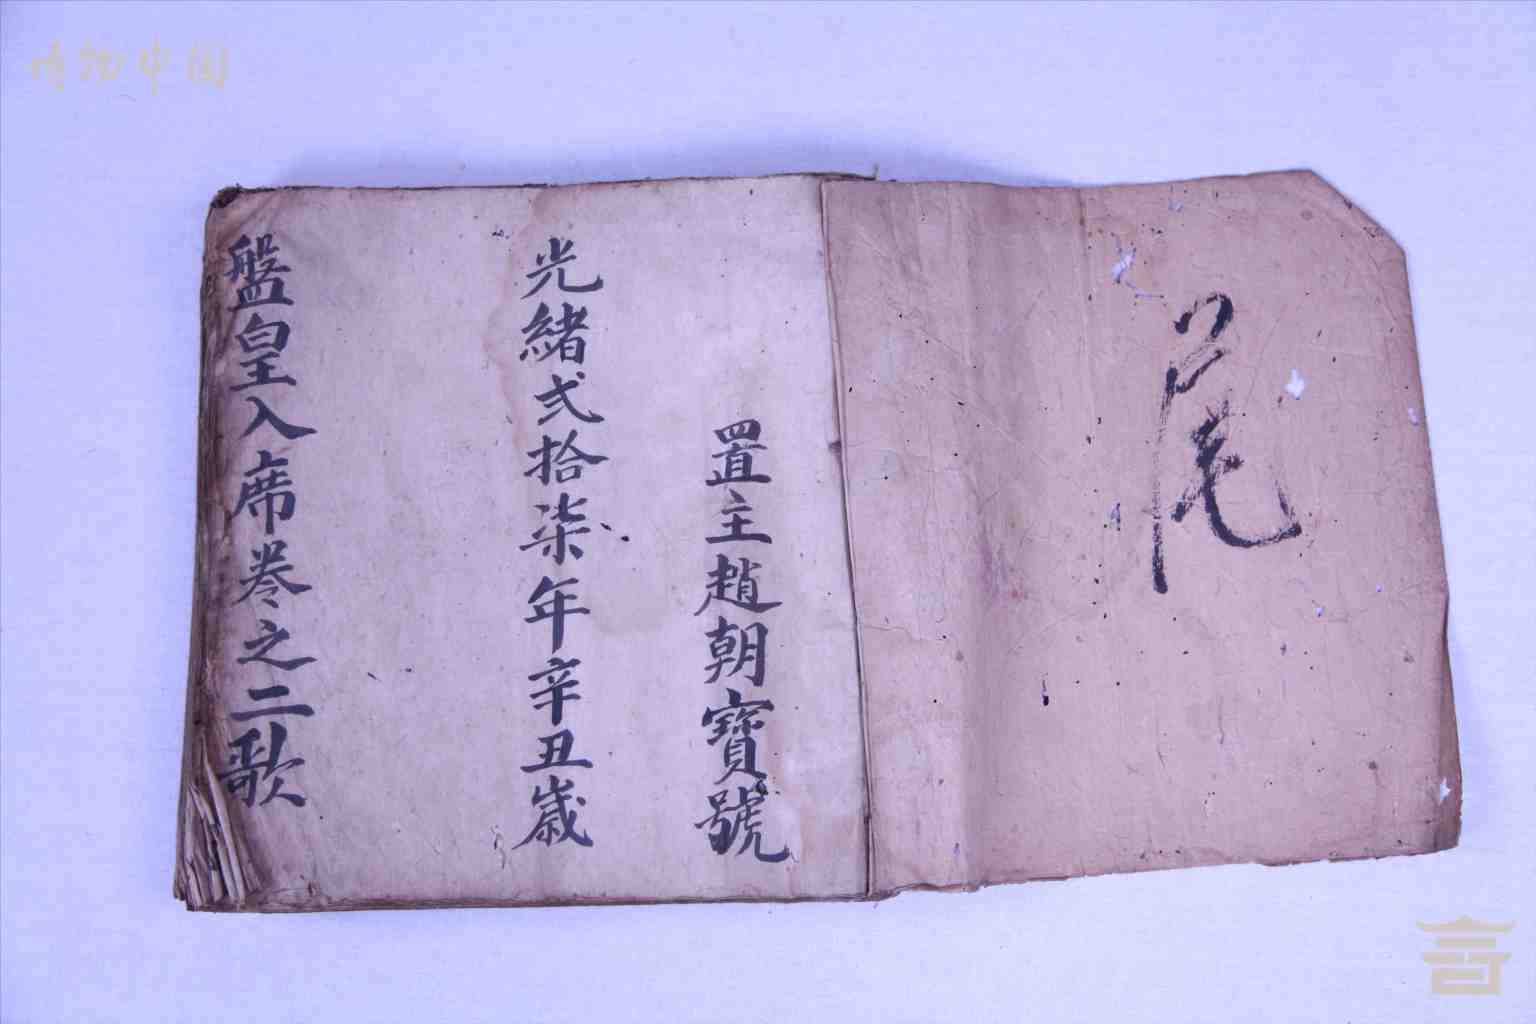 博物中国
尾
置主趙朝寳號
光緒弍拾柒年辛丑歲
盤皇入席卷之二歌